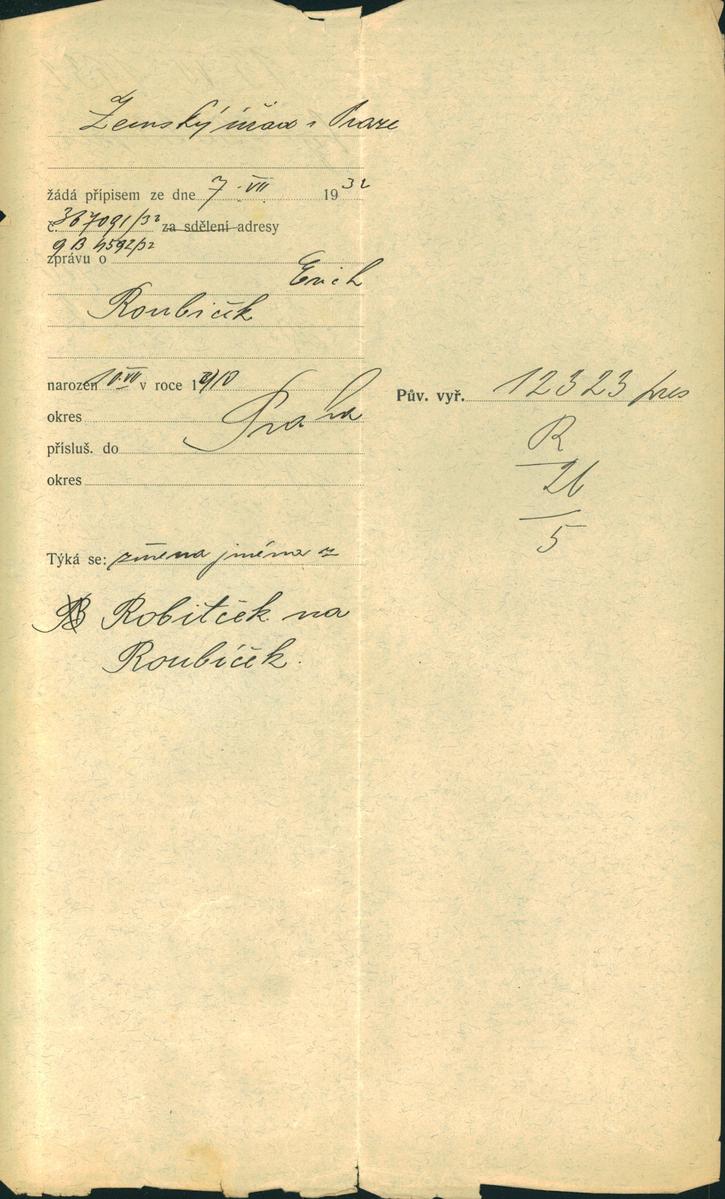 Zemský úřad v Praze
žádá přípisem ze dne 7. VII. 1932
č. 367091/32 za sdělení adresy
9 B 4592/32
zprávu o
Erich
Roubíček
narozen 10. VII v roce 1910
okres
Praha
přísluš. do
okres
Pův. vyř. 12323 pres
R
26
5
Týká se: změna jména z
Robitček na
Roubíček.